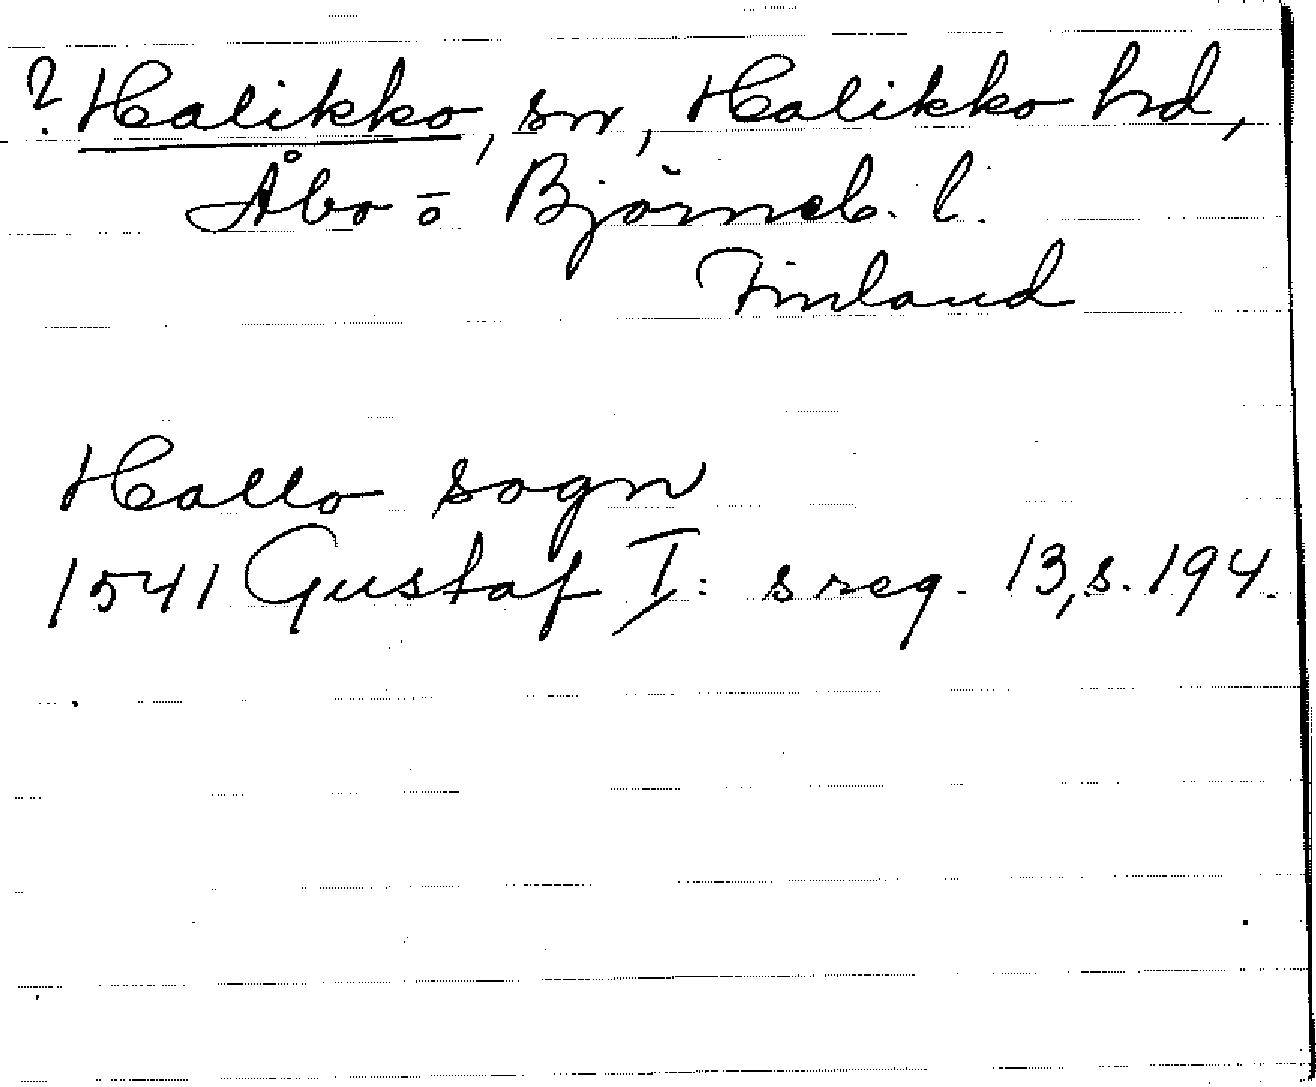 ? Halikko, sn, Halikko hd,
Åbo o Björneb. l.
Finland
Hallo sogn
1541 Gustaf I: s reg. 13, s. 194.